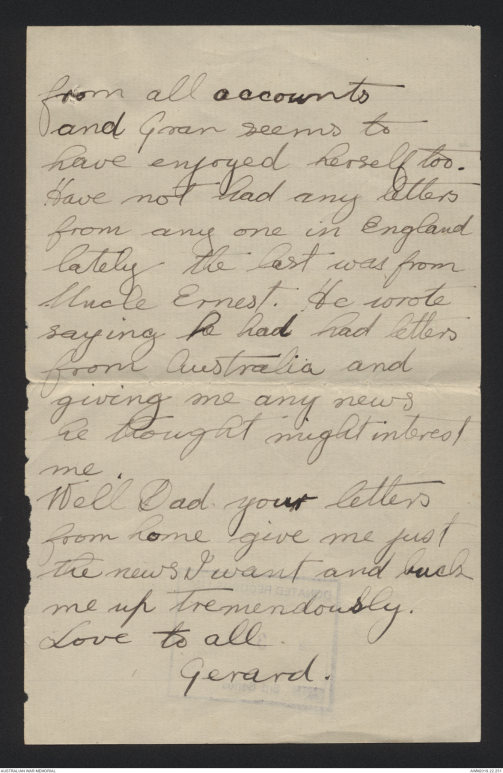 from all accounts
and Gran seems to
have enjoyed herself too.
Have not had any letters
from any one in England
lately the last was from
Uncle Ernest. He wrote
saying he had had letters
from Australia and
giving me any news
he thought might interest
me.
Well Dad your letters
from home give me just
the news I want and buck
me up tremendously.
Love to all.
Gerard.
AUSTRALIAN WAR MEMORIAL